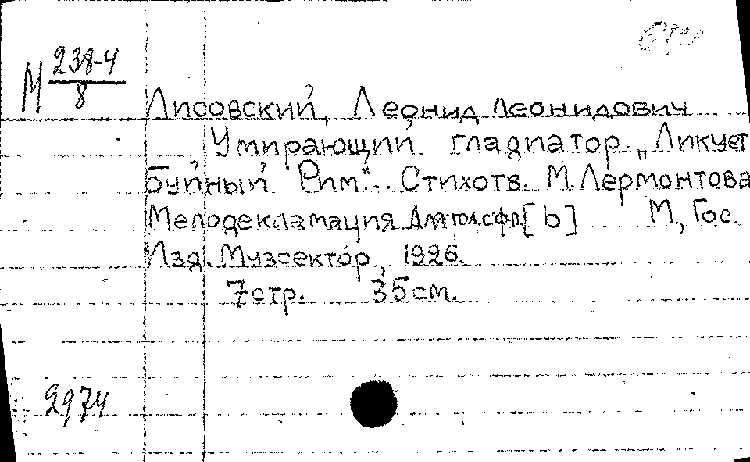 М 238-4
8
Лисовский, Леонид Леонидович
Умирающий гладиатор. „Ликует
буйный Рим“. Стихотв. М. Лермонтова
Мелодекламация Для гол. с фп. [b] М., Гос.
Изд. Музсектор, 1926.
7 стр. 35 см.
2974